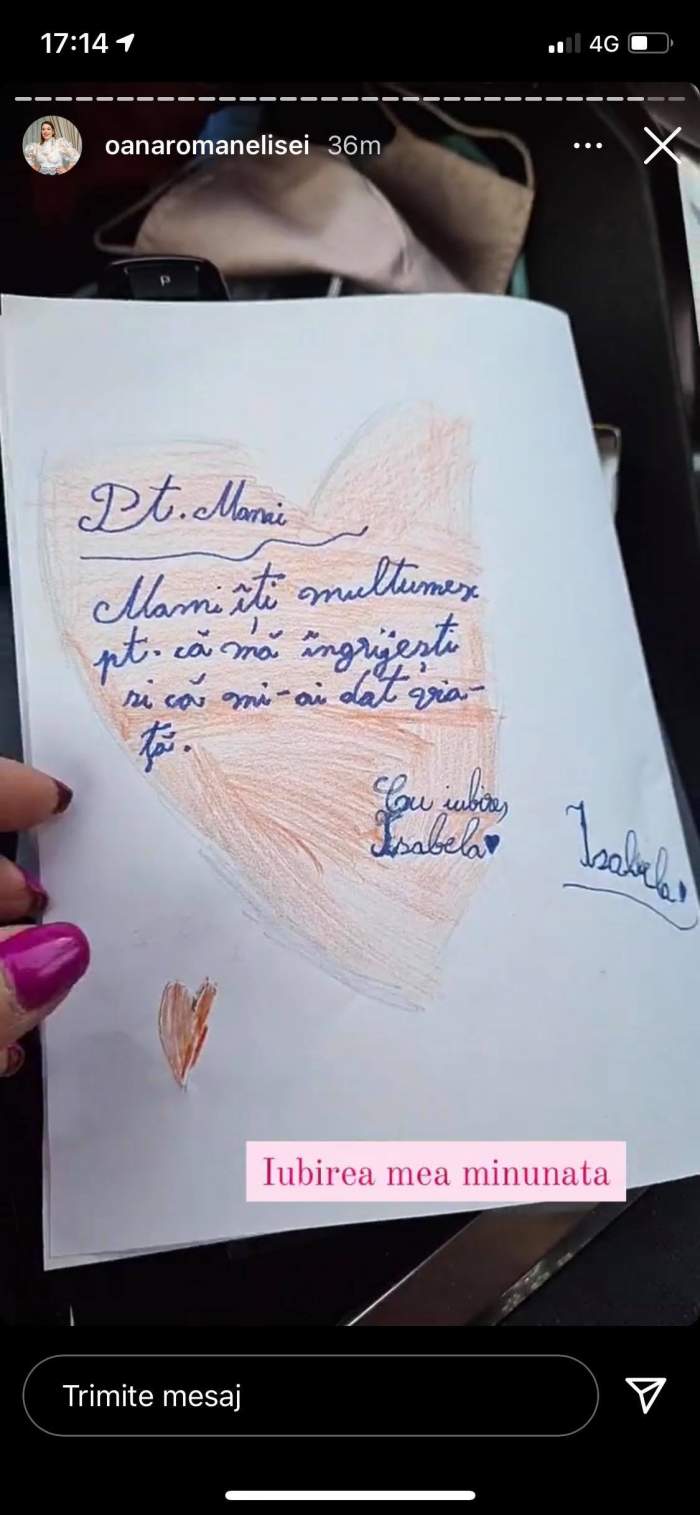 17:14
4G
oanaromanelisei 36m
P
Pt. Mami
Mami îți multumesc
pt. că mă îngrijești
si că mi-ai dat via-
ță.
Cu iubire,
Isabela
Isabela
Iubirea mea minunata
Trimite mesaj